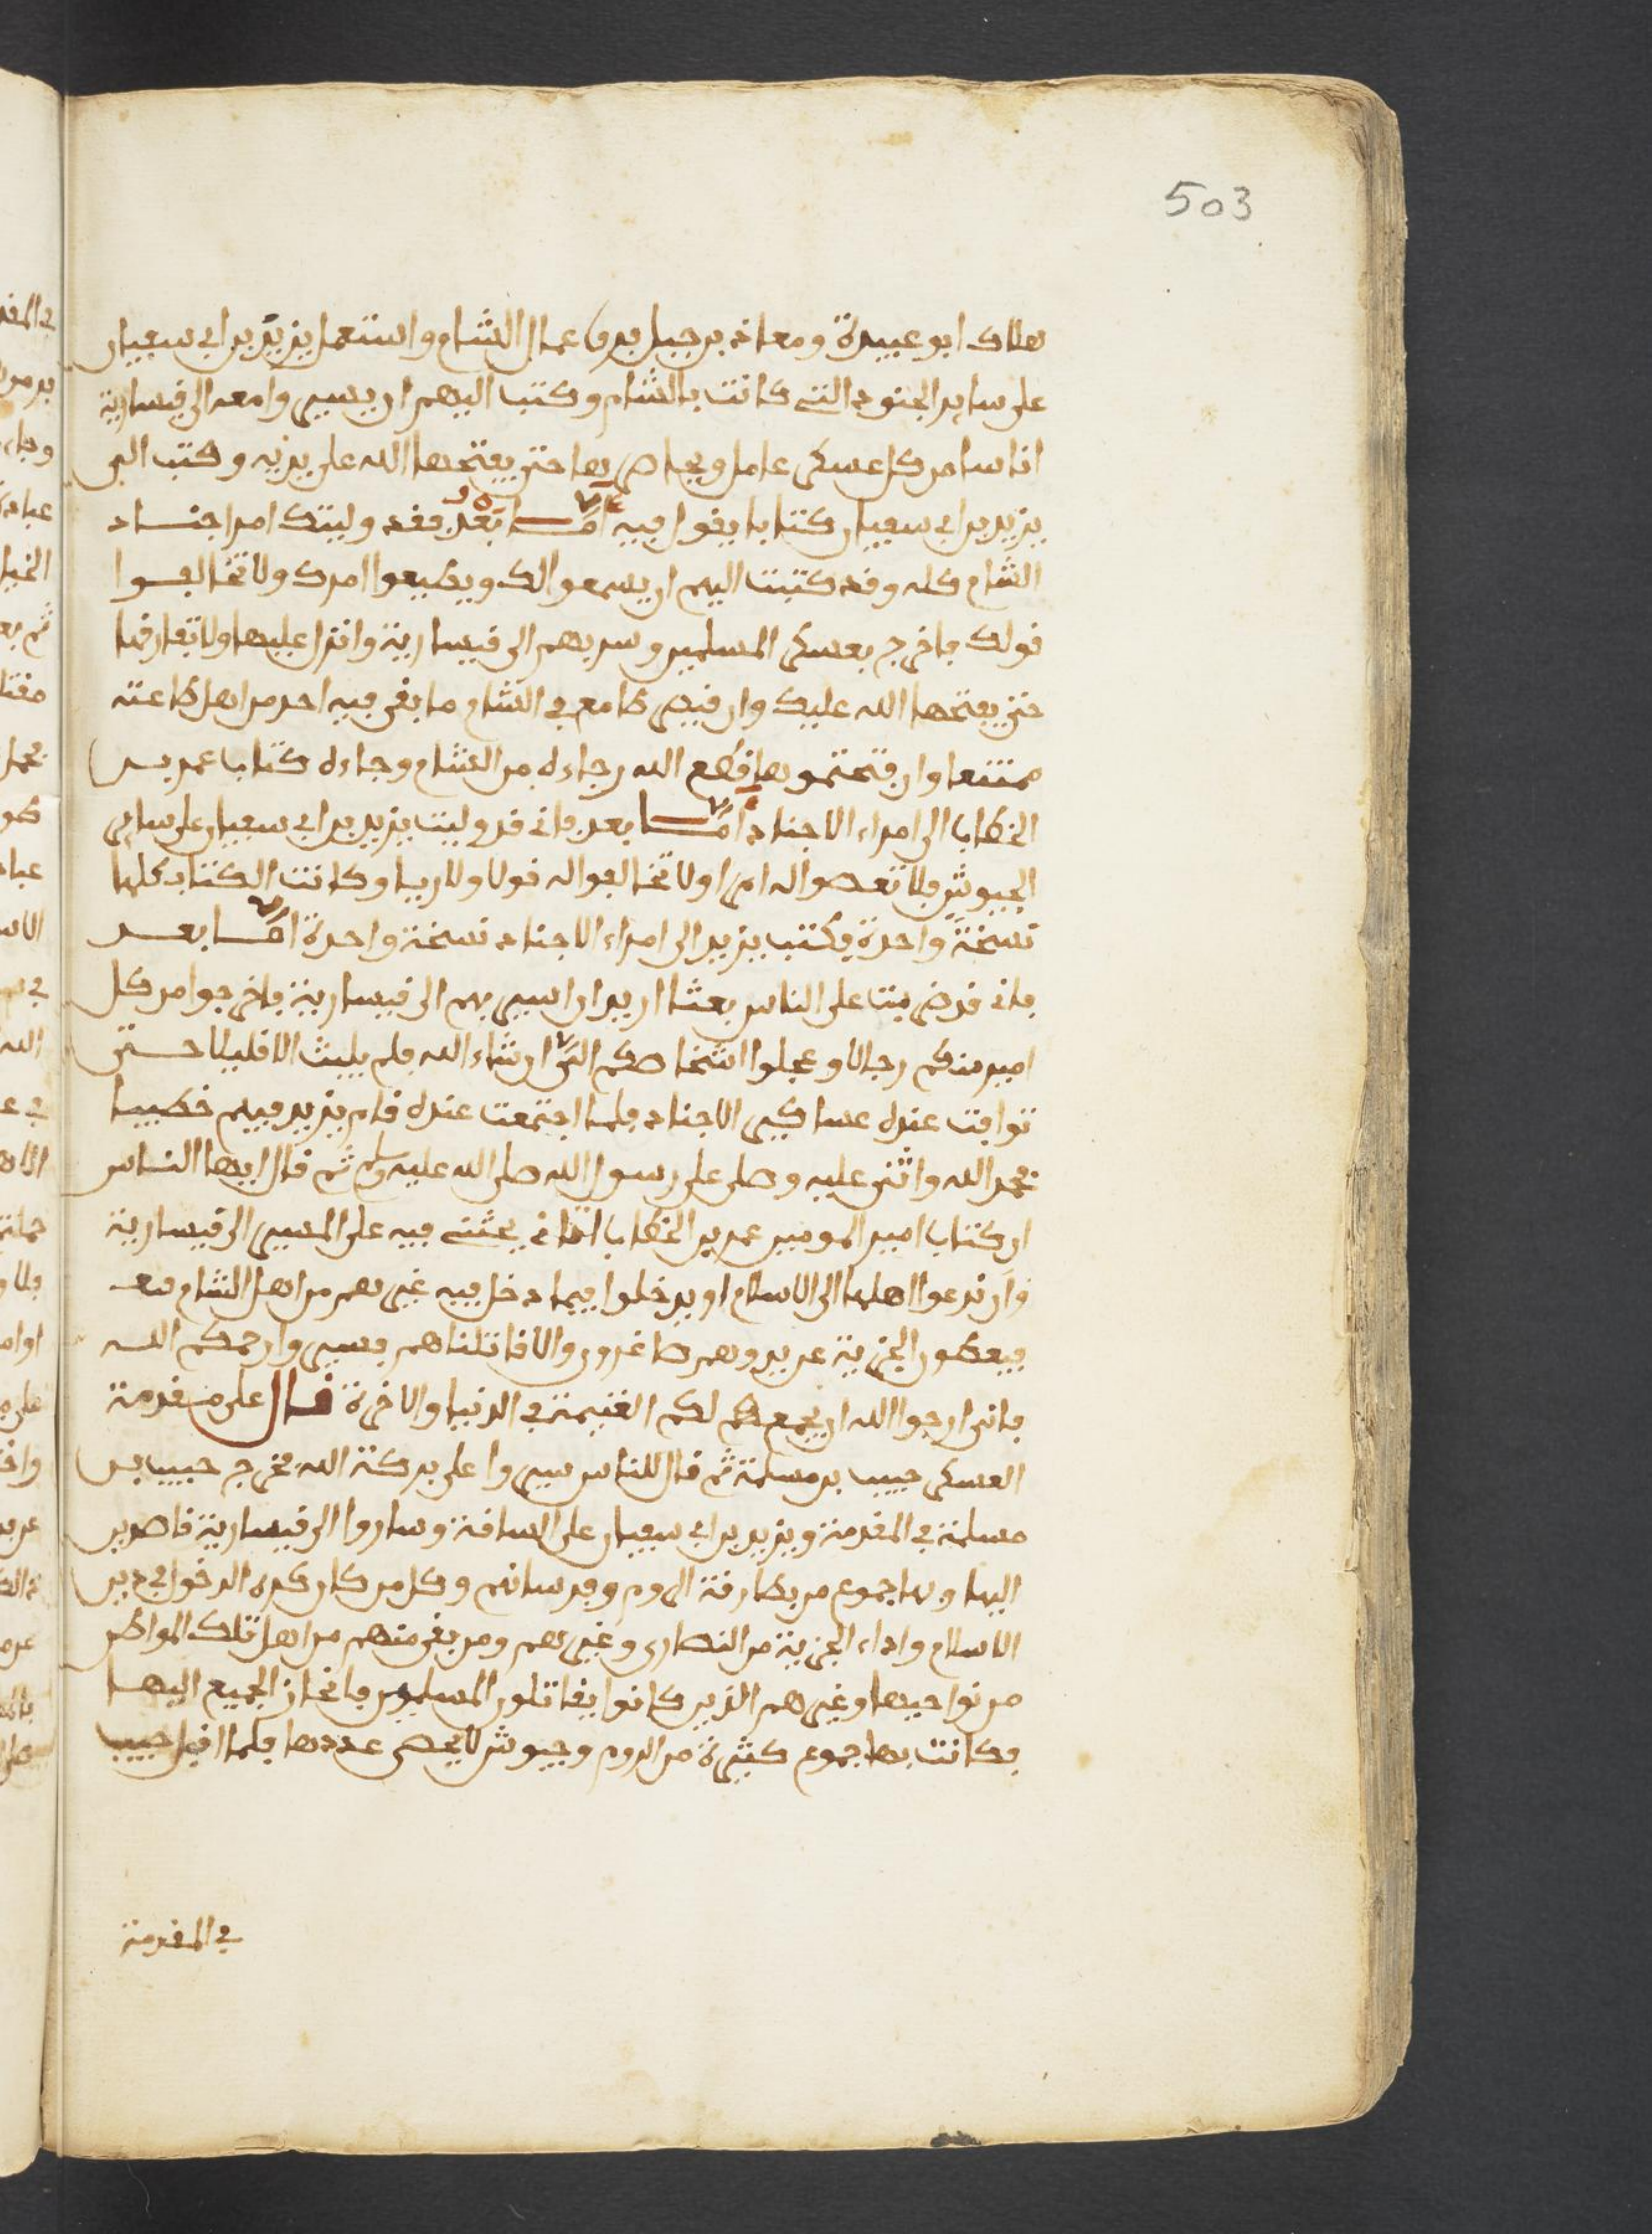 503
هلاك ابو عبيدة ومعاذ بن جبل فرق عمال الشام واستعمل يزيد بن ابي سفيان
على ساير الجنود التي كانت بالشام وكتب اليهم ان يسيروا معه الى قيسارية
اناسا من كل عسكر عاملو يحاصر بها حتى يفتحها الله على يديه وكتب الى
يزيد بن ابي سفيان كتابا يقول فيه اما بعد فقد وليتك امر اجناد
الشام كله وقد كتبت اليهم ان يسمعوا لك ويطيعوا امرك ولا تخالفوا
قولك فاخرج بعسكر المسلمين وسر بهم الى قيسارية وانزل عليها ولا تفارقها
حتى يفتحها الله عليك وان قيصر طامع في الشام ما بقي فيه احد من اهل طاعته
ممتنعا وان فتحتموها قطع الله رجاءه من الشام وجاءه كتاب عمر بن
الخطاب الى امراء الاجناد اما بعد فاني قد وليت يزيد بن ابي سفيان على ساير
الجيوش فلا تعصوا له امرا ولا تخالفوا له قولا ولا ريا وكانت الكتاب كلها
نسخة واحدة فكتب يزيد الى امراء الاجناد نسخة واحدة اما بعد
فاني قد ضربت على الناس بعثا اريد ان اسير بهم الى قيسارية فاخرجوا من كل
امير منكم رجالا وعجلوا اشخاصكم الي ان شاء الله فلم يلبث الا قليلا حتى
توافت عنده عساكر الاجناد فلما اجتمعت عنده قام يزيد فيهم خطيبا
فحمد الله واثنى عليه وصلى على رسول الله صلى الله عليه وسلم ثم قال ايها الناس
ان كتاب امير المومنين عمر بن الخطاب اتاني يحثني فيه على المسير الى قيسارية
وان ندعوا اهلها الى الاسلام او يدخلوا فيما دخل فيه غيرهم من اهل الشام معه
فيعطون الجزية عن يد وهم صاغرون والا قاتلناهم فسيروا رحمكم الله
فاني ارجوا الله ان يجمع لكم الغنيمة في الدنيا والاخرة قال على مقدمة
العسكر حبيب بن مسلمة ثم قال للناس سيروا على بركة الله فخرج حبيب بن
مسلمة في المقدمة ويزيد بن ابي سفيان على الساقة وساروا الى قيسارية قاصدين
اليها وبها جموع من بطارقة الروم وفرسانهم وكل من كان كره الدخول في دين
الاسلام واداء الجزية من النصارى وغيرهم ومن بقي منهم من اهل تلك المواطن
من نواحيها وغيرهم الذين كانوا يقاتلون المسلمين فانحاز الجميع اليها
فكانت بها جموع كثيرة من الروم وجيوش لا يحصى عددها فلما اقبل حبيب
في المقدمة